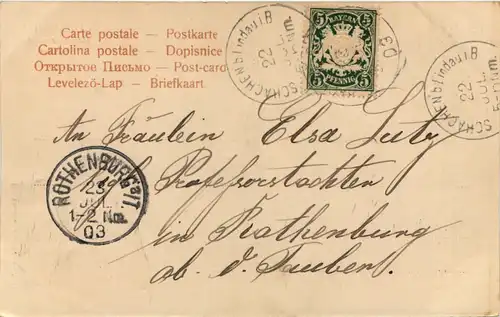 Carte postale – Postkarte
Cartolina postale – Dopisnice
Открытое Письмо – Post-card
Levelező-Lap – Briefkaart
SCHACHEN b. Lindau i B
22
JUL
03
5 BAYERN 5
5 PFENNIG 5
SCHACHEN b. Lindau i B
22
JUL
An Fräulein Elsa Lutz
Professorstochter
in Rothenburg
ob. d. Tauber.
ROTHENBURG a/T.
23
JUL
1-2 Nm
03